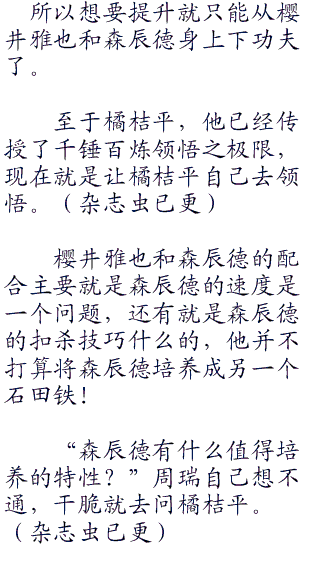 所以想要提升就只能从樱
井雅也和森辰德身上下功夫
了。
至于橘桔平，他已经传
授了千锤百炼领悟之极限，
现在就是让橘桔平自己去领
悟。（杂志虫已更）
樱井雅也和森辰德的配
合主要就是森辰德的速度是
一个问题，还有就是森辰德
的扣杀技巧什么的，他并不
打算将森辰德培养成另一个
石田铁！
“森辰德有什么值得培
养的特性？”周瑞自己想不
通，干脆就去问橘桔平。
（杂志虫已更）